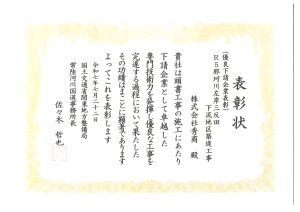 表彰状
(優良下請企業表彰)
R5那珂川左岸三反田
下流地区築堤工事
株式会社秀商 殿
貴社は頭書工事の施工にあたり
下請企業として卓越した
専門技術力を発揮し優良な工事を
完遂する過程において果たした
その功績はまことに顕著であります
よってこれを表彰します
令和七年七月二十二日
国土交通省関東地方整備局
常陸河川国道事務所長
佐々木 哲也